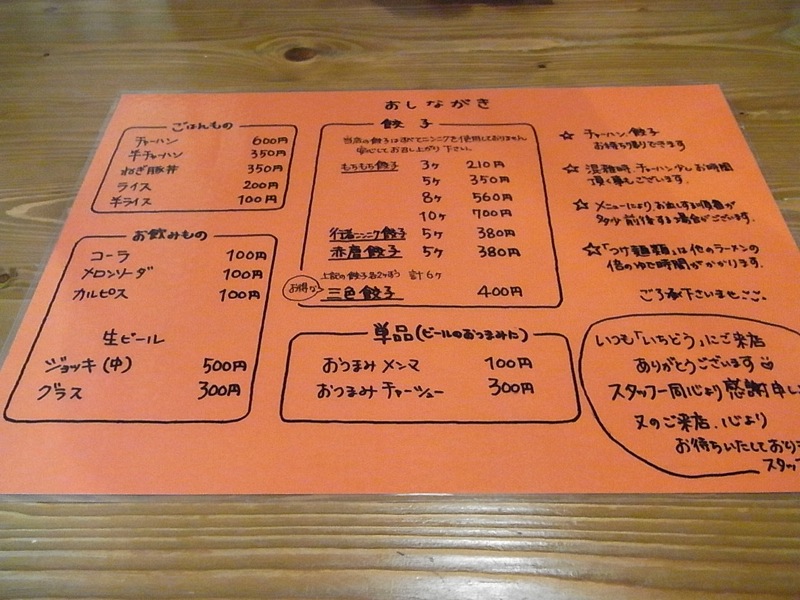 おしながき
ごはんもの
チャーハン 600円
半チャーハン 350円
ねぎ豚丼 350円
ライス 200円
半ライス 100円
お飲みもの
コーラ 100円
メロンソーダ 100円
カルピス 100円
生ビール
ジョッキ(中) 500円
グラス 300円
餃子
当店の餃子はすべてニンニクを使用しておりません
安心してお召し上がり下さい。
もちもち餃子 3ヶ 210円
5ヶ 350円
8ヶ 560円
10ヶ 700円
行者ニンニク餃子 5ヶ 380円
赤唐餃子 5ヶ 380円
上記の餃子各2ヶずつ 計6ヶ
お得な 三色餃子 400円
単品(ビールのおつまみに)
おつまみ メンマ 100円
おつまみ チャーシュー 300円
☆ チャーハン、餃子
お持ち帰りできます
☆ 混雑時 チャーハン少しお時間
頂く事もございます。
☆ メニューによりお出しする順番が
多少前後する場合がございます。
☆「つけ麺類」は他のラーメンの
倍のゆで時間がかかります。
ご了承下さいませ。
いつも「いちどう」にご来店
ありがとうございます
スタッフ一同心より感謝申し
又のご来店、心より
お待ちいたしており
スタッフ